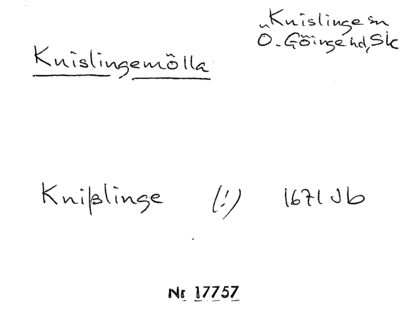 Knislinge sn
Ö. Göinge hd, Sk
Knislingemölla
Knißlinge (!) 1671 Jb
Nr 17757